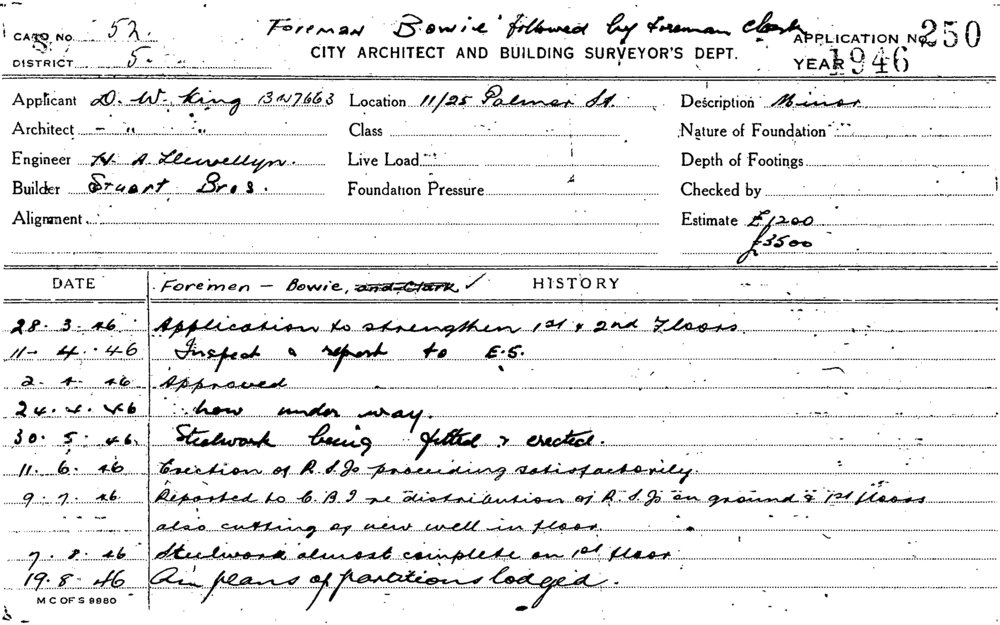 Foreman Bowie followed by foreman Clark
CARD NO. 52.
CITY ARCHITECT AND BUILDING SURVEYOR'S DEPT.
APPLICATION No. 250
DISTRICT 5.
YEAR 1946
Applicant D. W. King BW7663 Location 11/25 Palmer St. Description Minor
Architect - " " Class Nature of Foundation
Engineer H. A. Llewellyn. Live Load Depth of Footings
Builder Stuart Bros. Foundation Pressure Checked by
Alignment Estimate £1200
£3500
DATE Foremen – Bowie, and Clark ✓ HISTORY
28. 3. 46 Application to strengthen 1st & 2nd Floors
11- 4. 46 Inspect & report to E.S.
2. 4. 46 Approved
24. 4. 46 now under way.
30. 5. 46. Steelwork being fitted & erected.
11. 6. 46 Erection of R.S.Js proceeding satisfactorily.
9. 7. 46 Reported to C.B.I re distribution of R.S.Js on ground & 1st floors
also cutting of new well in floor
7. 8. 46 Steelwork almost complete on 1st floor
19. 8. 46 plans of partitions lodged.
M C OF S 9980